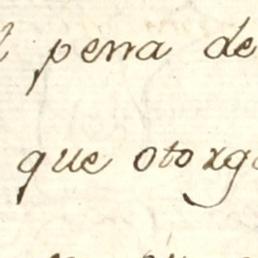 pena de
que otorga